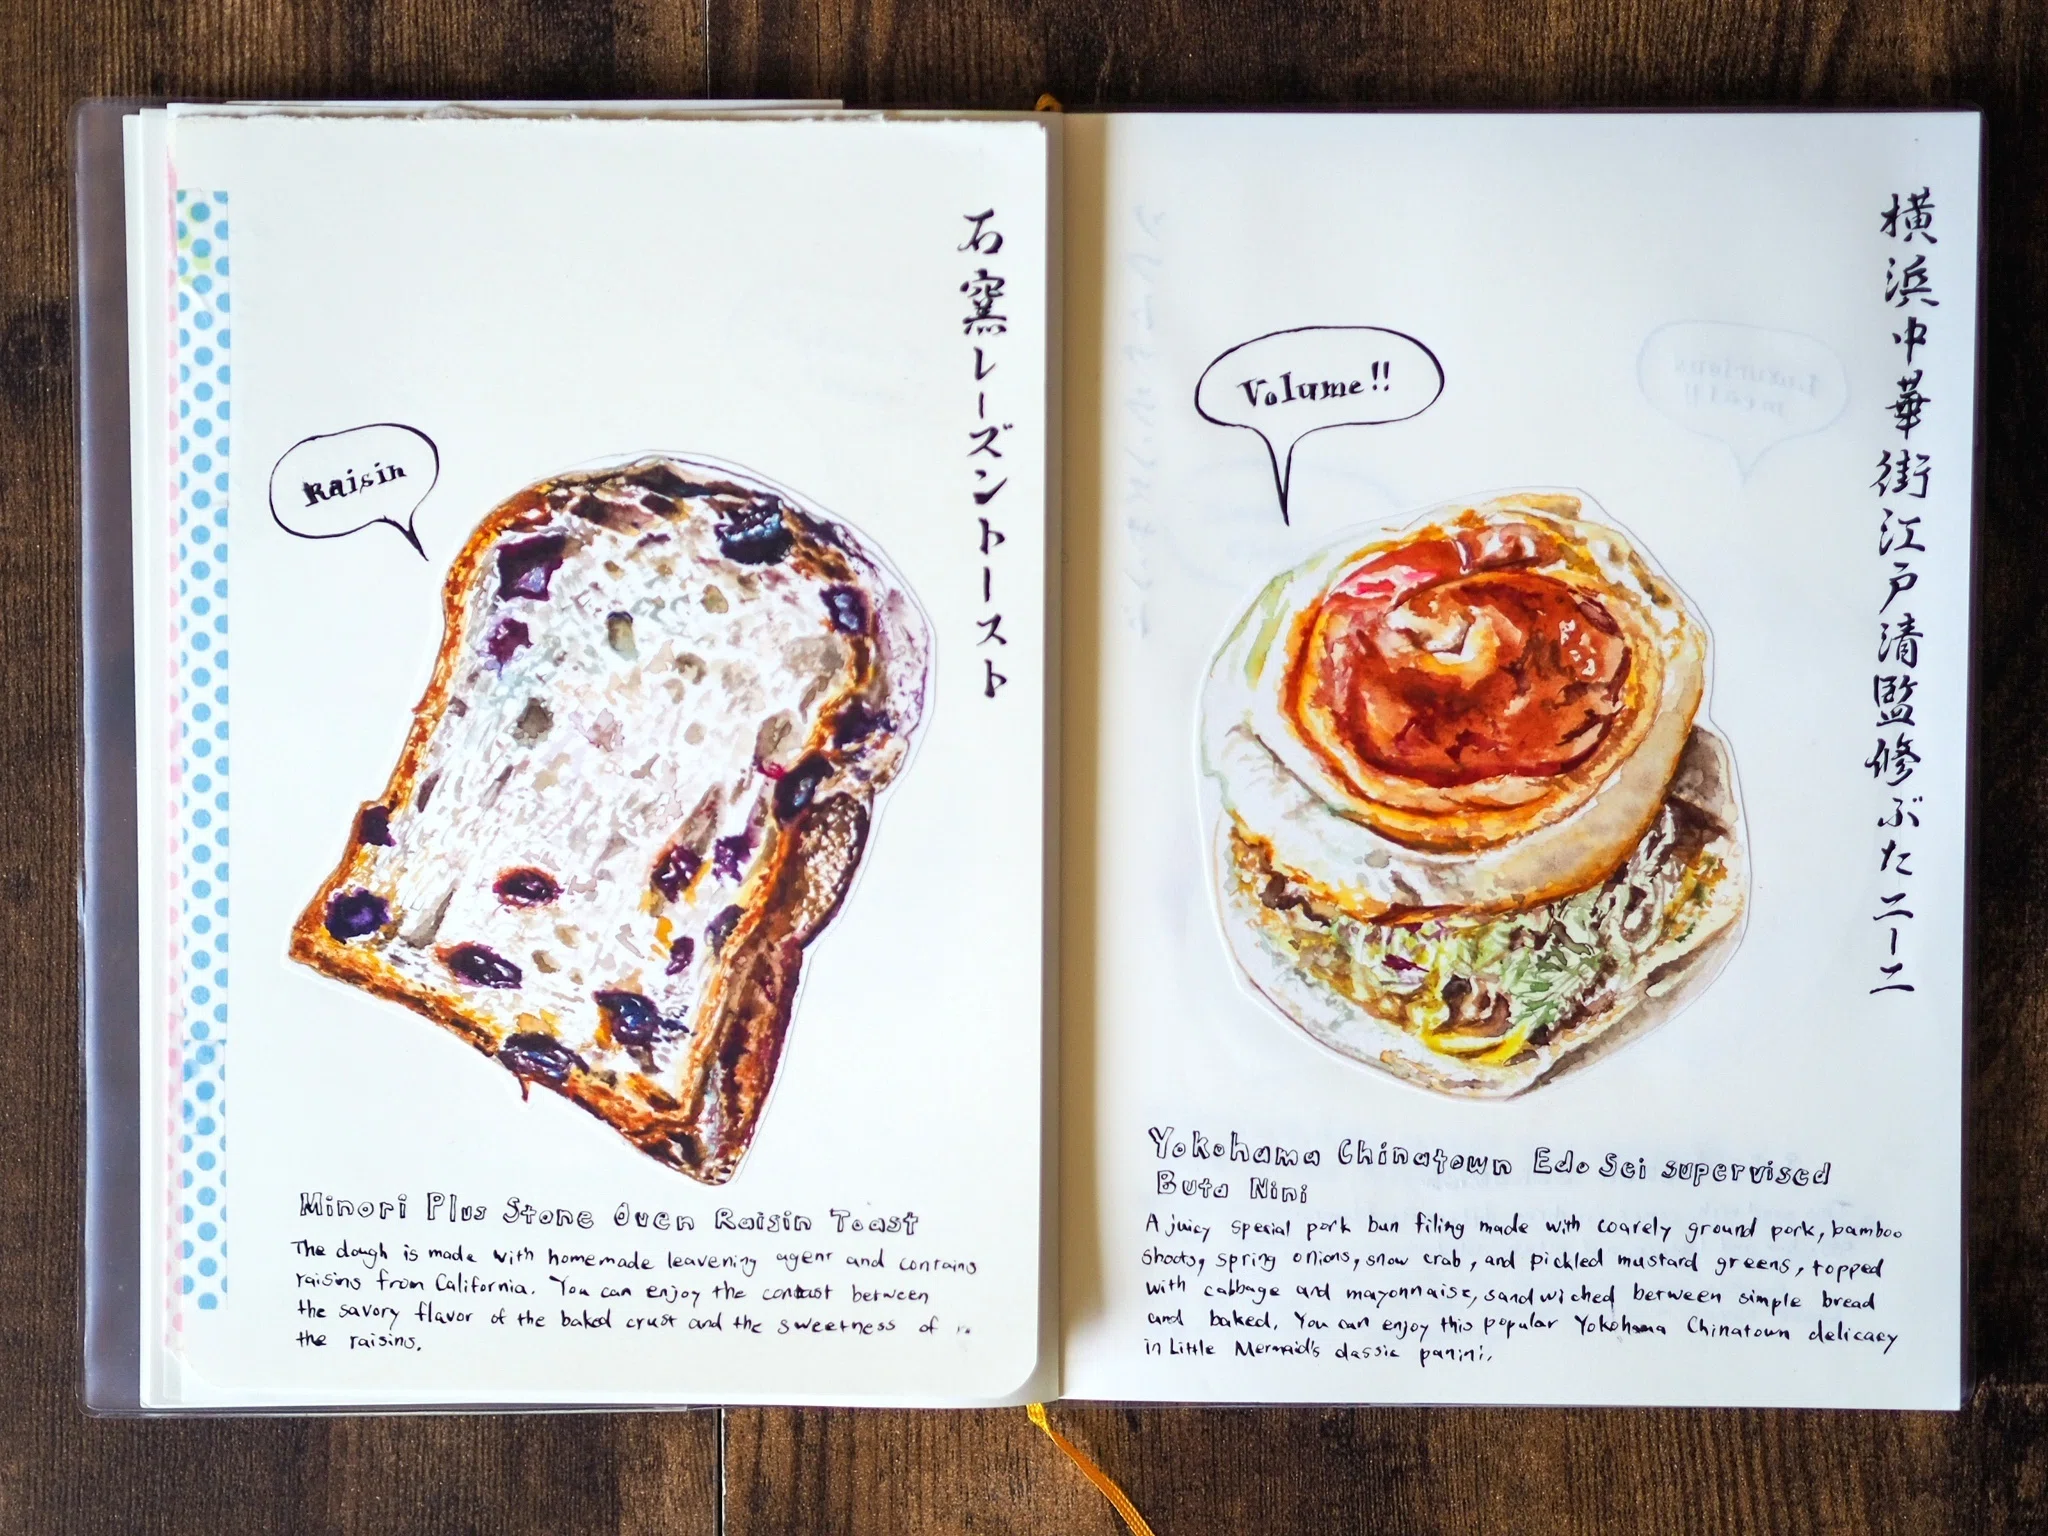 石窯レーズントースト
Raisin
Minori Plus Stone Oven Raisin Toast
The dough is made with homemade leavening agent and contains
raisins from California. You can enjoy the contast between
the savory flavor of the baked crust and the sweetness of
the raisins.
横浜中華街江戸清監修ぶたニーニ
Volume!!
Luxurious
meal!!
Yokohama Chinatown Edo Sei supervised
Buta Nini
A juicy special pork bun filing made with coarely ground pork, bamboo
shoots, spring onions, snow crab, and pickled mustard greens, topped
with cabbage and mayonnaise, sandwiched between simple bread
and baked. You can enjoy this popular Yokohama Chinatown delicacy
in Little Mermaid's classic panini.